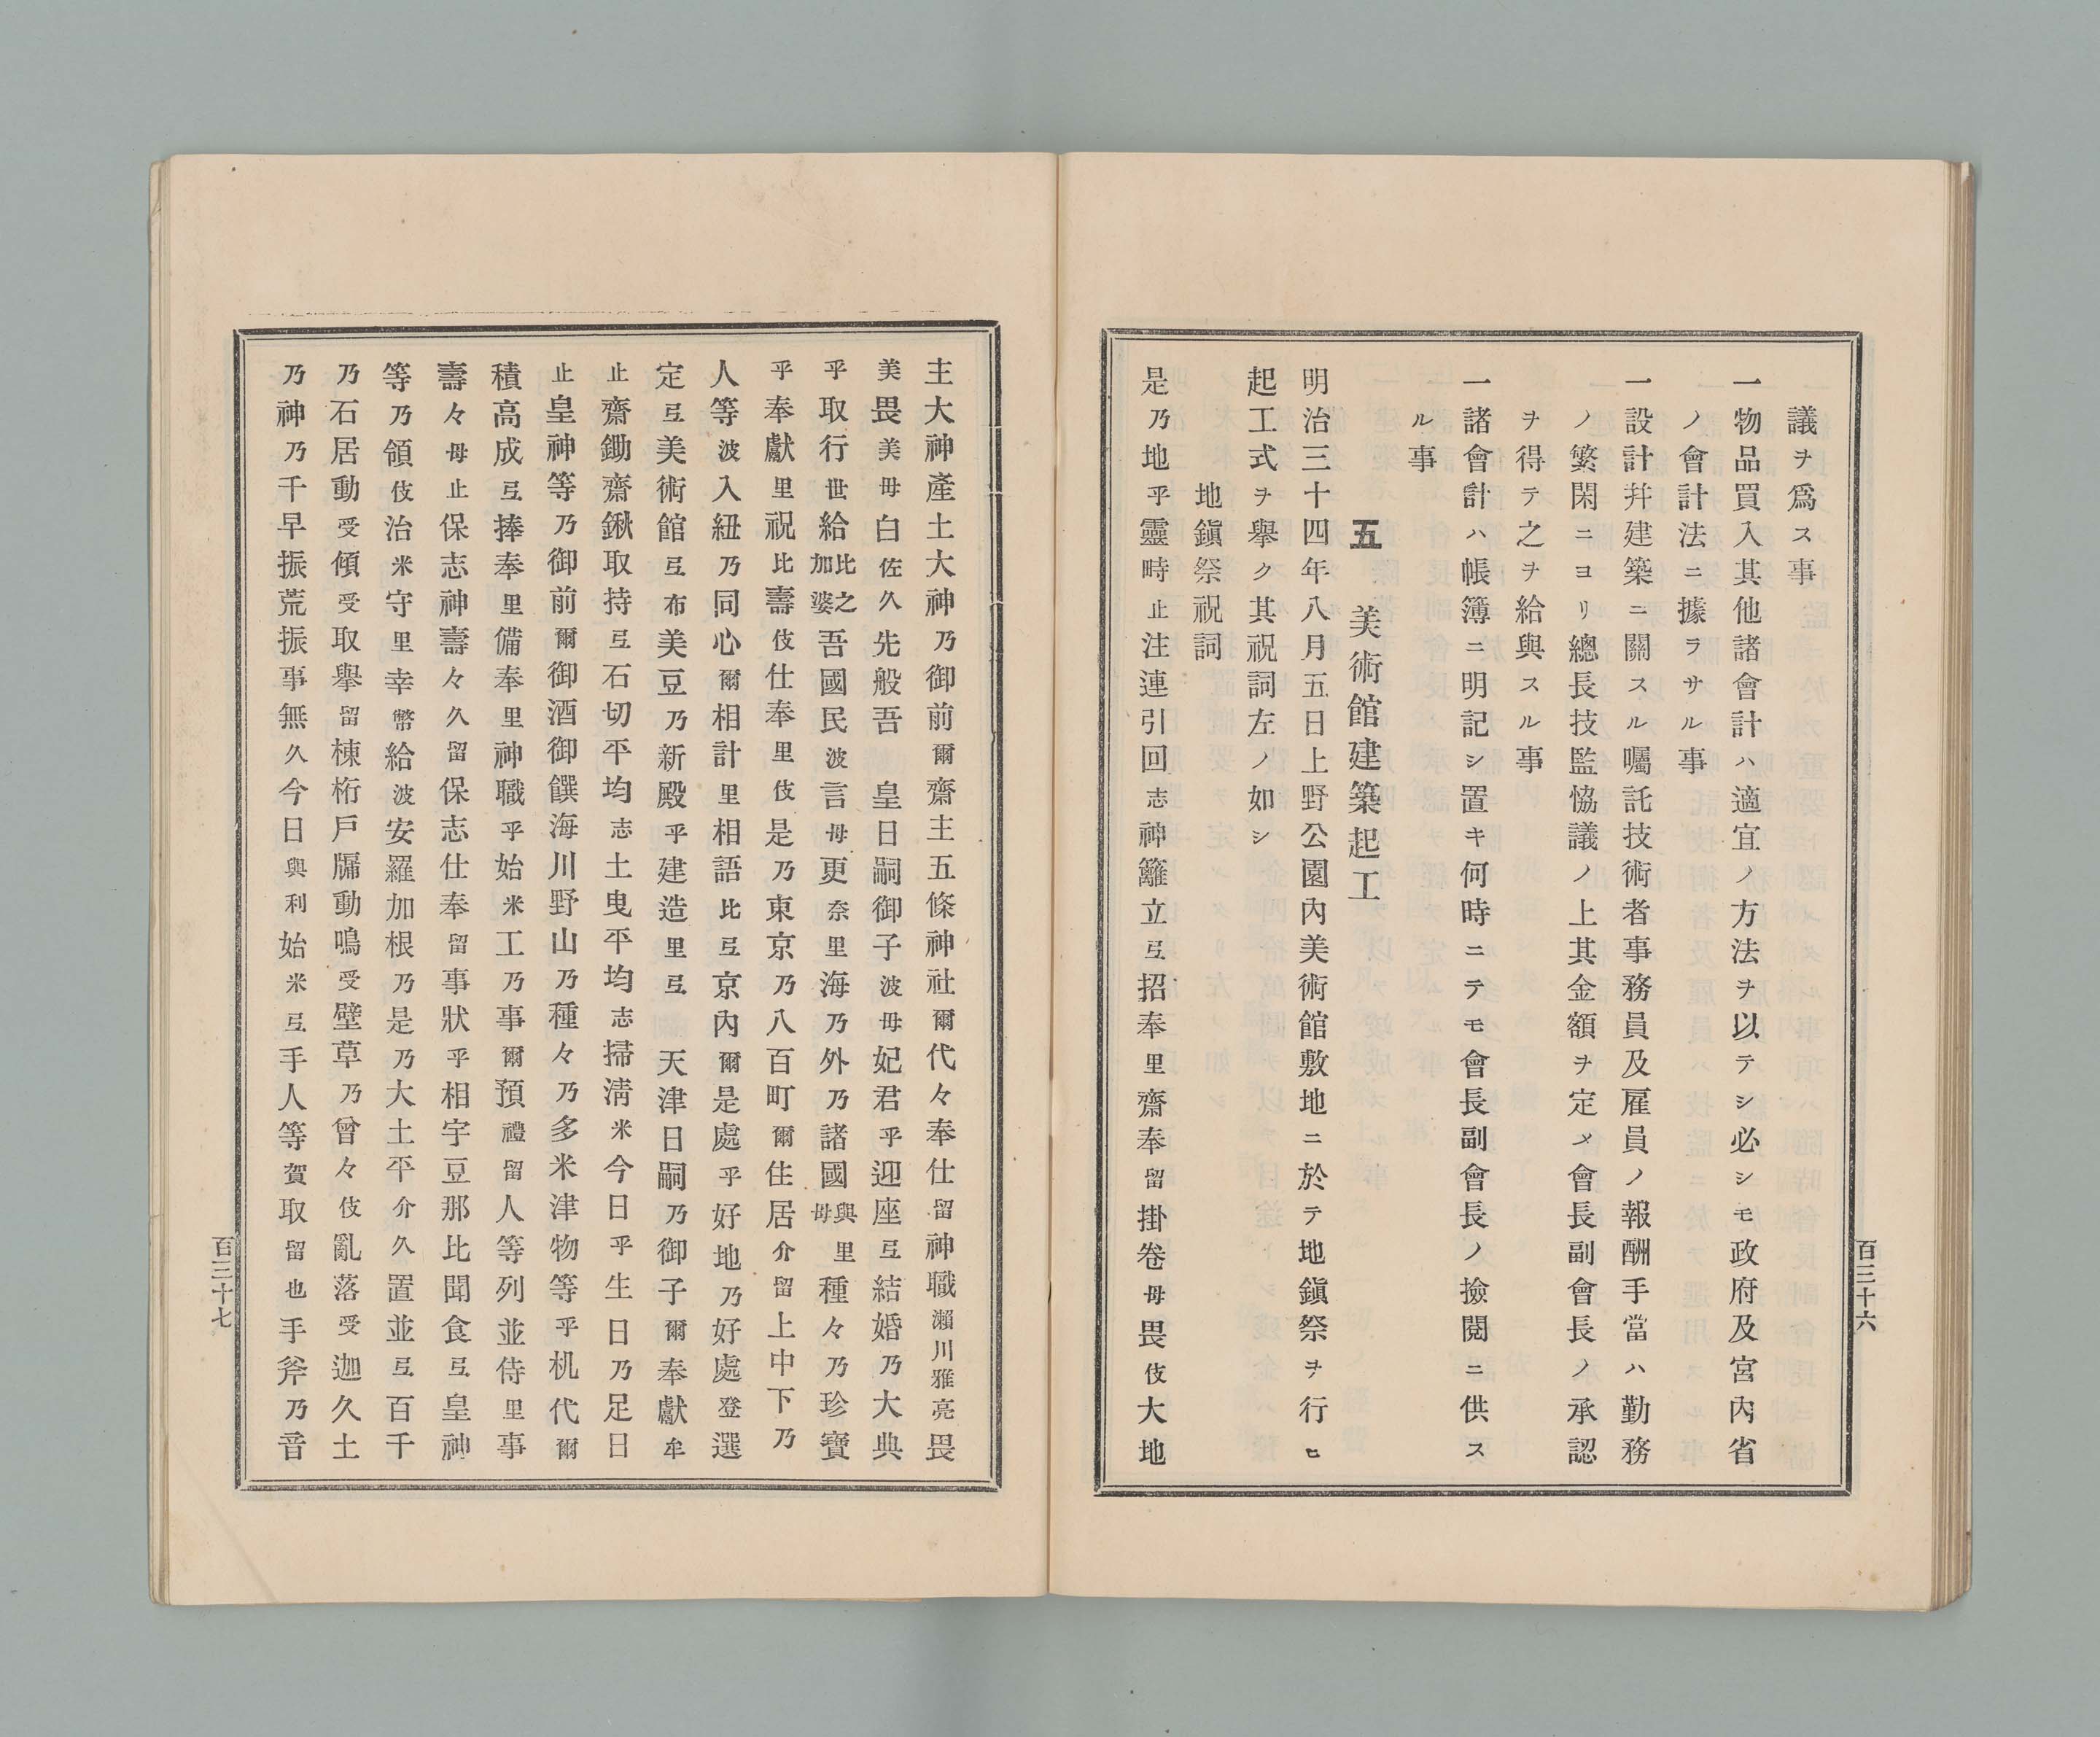 議ヲ爲ス事
一物品買入其他諸會計ハ適宜ノ方法ヲ以テシ必シモ政府及宮内省
ノ會計法ニ據ラサル事
一設計幷建築ニ關スル囑託技術者事務員及雇員ノ報酬手當ハ勤務
ノ繁閑ニヨリ總長技監恊議ノ上其金額ヲ定メ會長副會長ノ承認
ヲ得テ之ヲ給與スル事
一諸會計ハ帳簿ニ明記シ置キ何時ニテモ會長副會長ノ撿閱ニ供ス
ル事
五　美術館建築起工
明治三十四年八月五日上野公園內美術館敷地ニ於テ地鎭祭ヲ行ヒ
起工式ヲ擧ク其祝詞左ノ如シ
地鎭祭祝詞
是乃地乎靈時止注連引回志神籬立弖招奉里齋奉留掛卷母畏伎大地
百三十六
主大神產土大神乃御前爾齋主五條神社爾代々奉仕留神職瀨川雅亮畏
美畏美母白佐久先般吾　皇日嗣御子波母妃君乎迎座弖結婚乃大典
乎取行世給比之加婆吾國民波言母更奈里海乃外乃諸國與里母種々乃珍寶
乎奉獻里祝比壽伎仕奉里伎是乃東京乃八百町爾住居介留上中下乃
人等波入紐乃同心爾相計里相語比弖京內爾是處乎好地乃好處登選
定弖美術館弖布美豆乃新殿乎建造里弖　天津日嗣乃御子爾奉獻牟
止齋鋤齋鍬取持弖石切平均志土曳平均志掃淸米今日乎生日乃足日
止皇神等乃御前爾御酒御饌海川野山乃種々乃多米津物等乎机代爾
積高成弖捧奉里備奉里神職乎始米工乃事爾預禮留人等列並侍里事
壽々母止保志神壽々久留保志仕奉留事狀乎相宇豆那比聞食弖皇神
等乃領伎治米守里幸幣給波安羅加根乃是乃大土平介久置並弖百千
乃石居動受傾受取擧留棟桁戶牖動鳴受壁草乃曾々伎亂落受迦久土
乃神乃千早振荒振事無久今日與利始米弖手人等賀取留也手斧乃音
百三十七